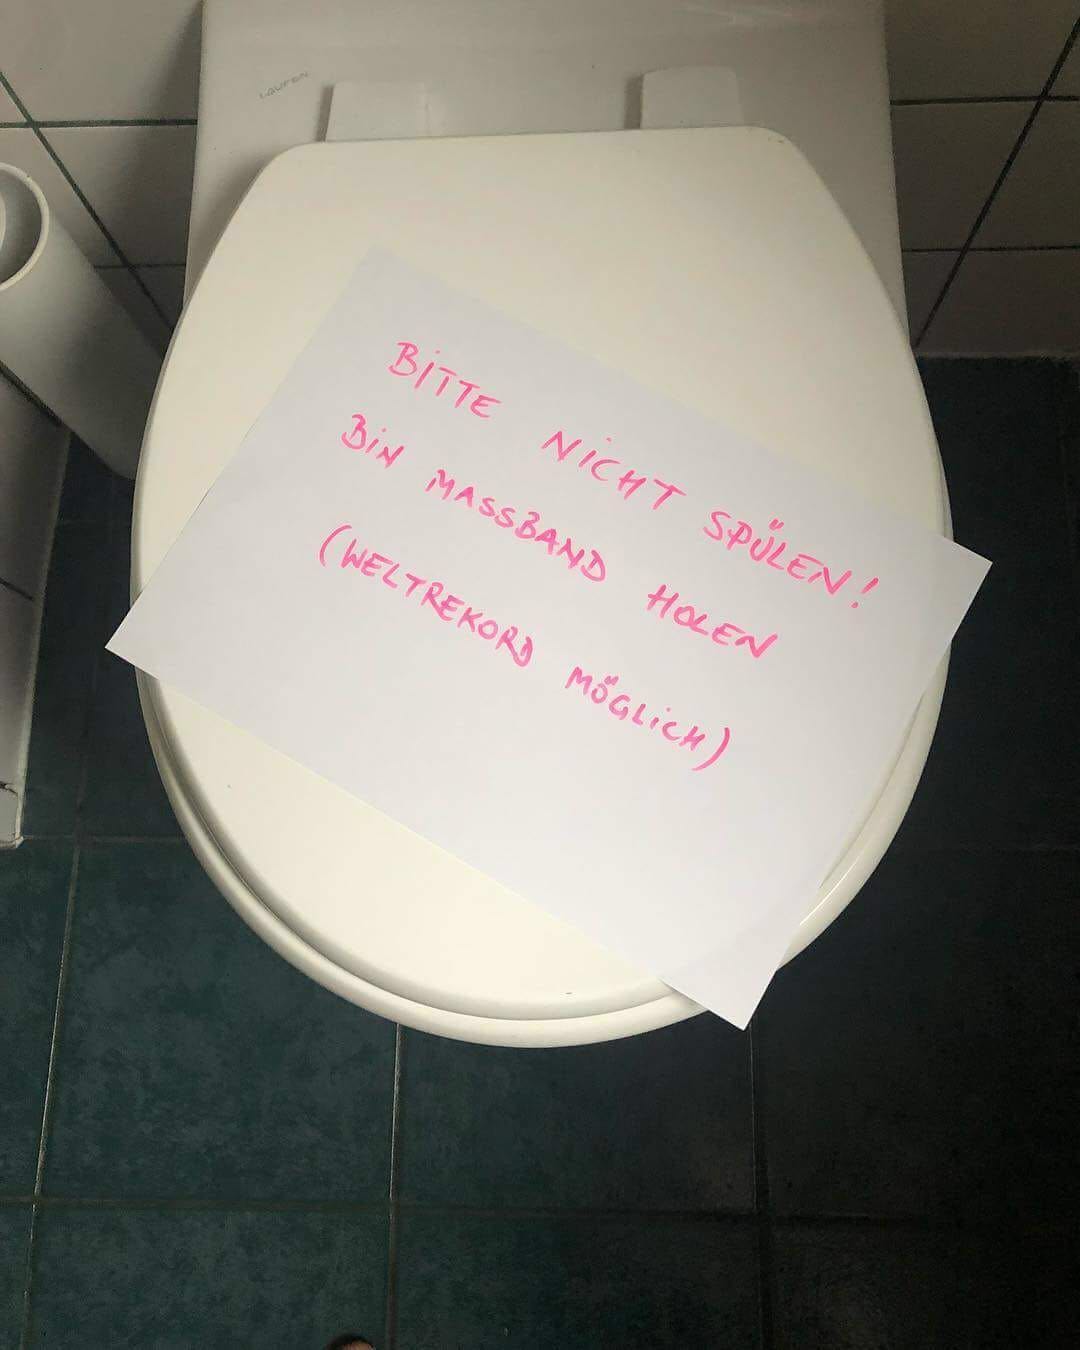 LAUFEN
BITTE NICHT SPÜLEN!
BIN MASSBAND HOLEN
(WELTREKORD MÖGLICH)